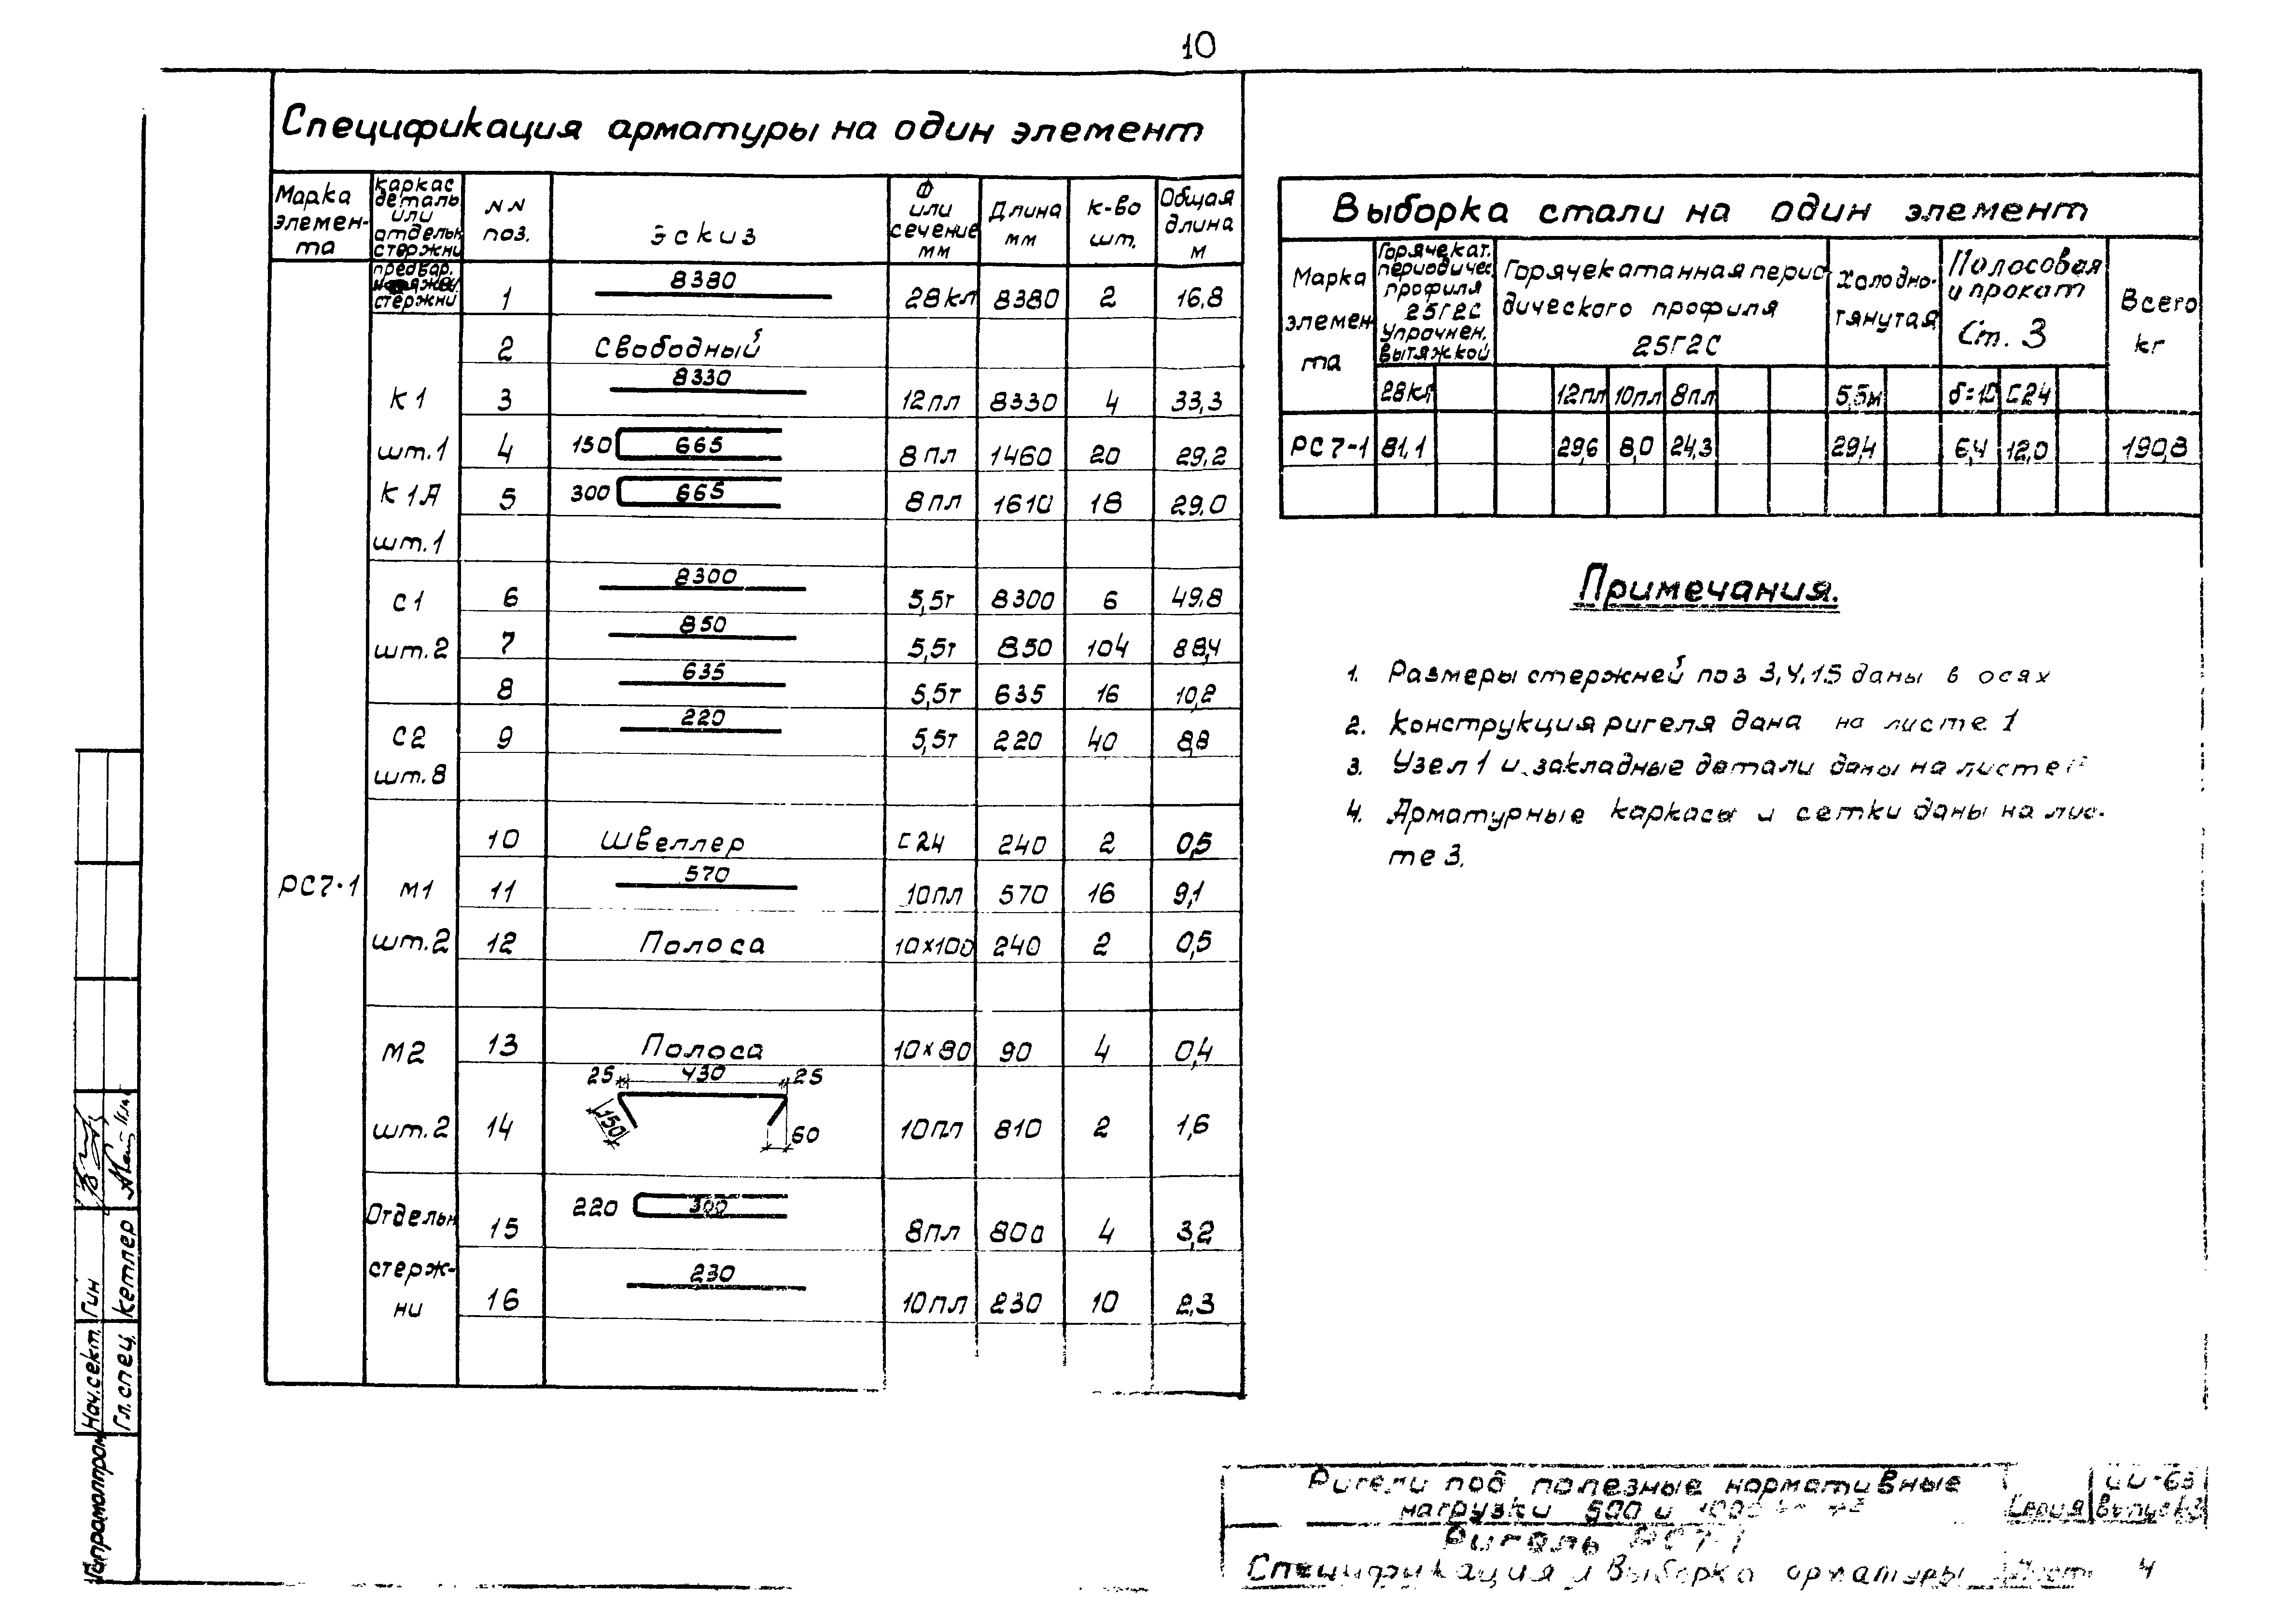 10
Спецификация арматуры на один элемент
Марка элемента | каркас деталь или отдельн стержни | NN поз. | эскиз | Ф или сечение мм | Длина мм | к-во шт. | Общая длина м
предвар. стержни | 1 | 8380 | 28кл | 8380 | 2 | 16,8
2 | Свободный
К1 | 3 | 8330 | 12пл | 8330 | 4 | 33,3
шт.1 | 4 | 150 665 | 8пл | 1460 | 20 | 29,2
К1А | 5 | 300 665 | 8пл | 1610 | 18 | 29,0
шт.1
С1 | 6 | 8300 | 5,5т | 8300 | 6 | 49,8
шт.2 | 7 | 850 | 5,5т | 850 | 104 | 88,4
8 | 635 | 5,5т | 635 | 16 | 10,2
С2 | 9 | 220 | 5,5т | 220 | 40 | 8,8
шт.8
10 | Швеллер | С24 | 240 | 2 | 0,5
РС7-1 | М1 | 11 | 570 | 10пл | 570 | 16 | 9,1
шт.2 | 12 | Полоса | 10×100 | 240 | 2 | 0,5
М2 | 13 | Полоса | 10×80 | 90 | 4 | 0,4
25 430 25
шт.2 | 14 | 150 60 | 10пл | 810 | 2 | 1,6
Отдельн | 15 | 220 300 | 8пл | 800 | 4 | 3,2
стерж-
ни | 16 | 230 | 10пл | 230 | 10 | 2,3
Выборка стали на один элемент
Марка элемента | Горячекат. периодичес профиля 25Г2С упрочнен. вытяжкой | Горячекатанная периодического профиля 25Г2С | Холодно-тянутая | Полосовая и прокат Ст. 3 | Всего кг
28кл | 12пл | 10пл | 8пл | 5,5м | δ=10 | С24
РС7-1 | 81,1 | 29,6 | 8,0 | 24,3 | 29,4 | 6,4 | 12,0 | 190,8
Примечания.
1. Размеры стержней поз 3,4,15 даны в осях
2. Конструкция ригеля дана на листе 1
3. Узел 1 и закладные детали даны на листе
4. Арматурные каркасы и сетки даны на лис-
те 3.
Ригели под полезные нормативные
нагрузки 500 и 1000
Серия | ИИ-63 выпуск 3
Ригель РС7-1
Спецификация и выборка арматуры | Лист 4
Нач.сект. Гин
Гл.спец. Кетлер